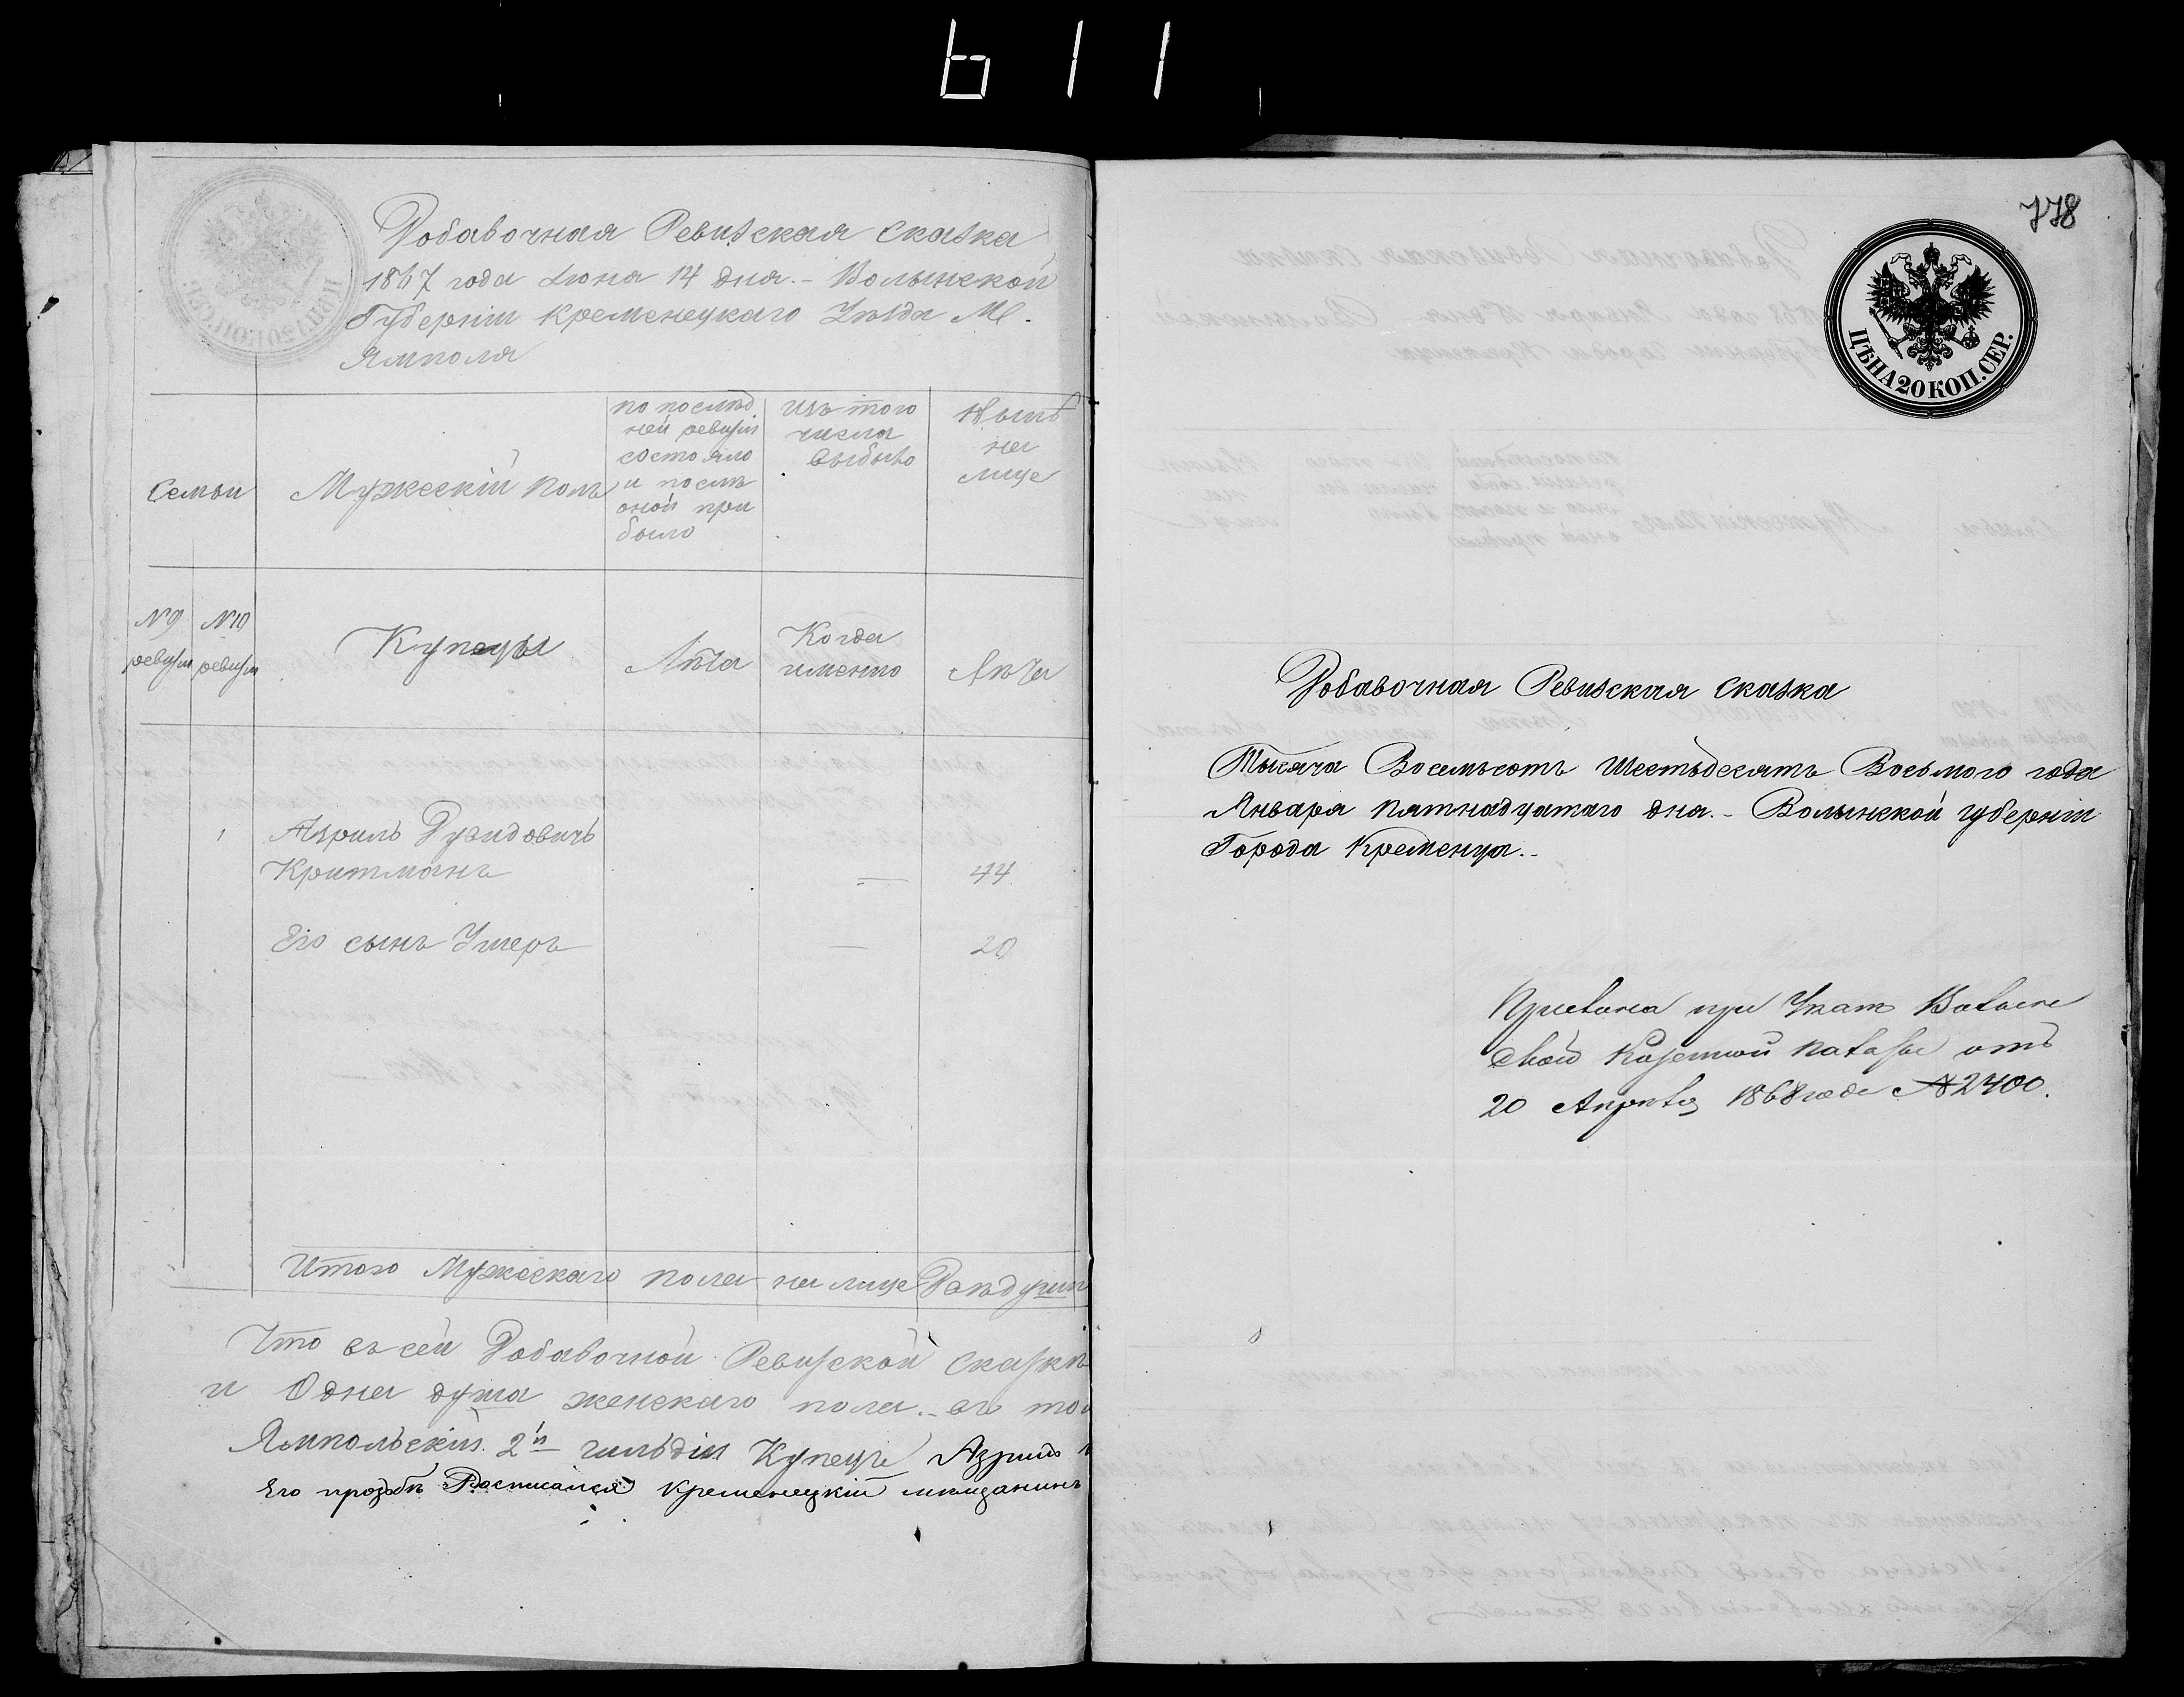 611
Добавочная Ревизская сказка
1867 года Июня 14 дня.- Волынской
Губерніи Кременецкаго Уѣзда М.
Ямполя
Семьи
Мужескій полъ
по послѣд
ней ревизіи
состояло
и послѣ
оной при
было
Изъ того
числа
выбыло
Нынѣ
на
лице
№ 9 ревизіи
№ 10 ревизіи
Купецы
Лѣта
Когда
именно
Лѣта
1 Азриль Дувидовичъ
Критманъ — 44
Его сынъ Ушеръ — 20
Итого Мужескаго пола на лице Двѣ души
Что въ сей Добавочной Ревизской сказкѣ
и Одна душа женскаго пола.- въ том
Ямпольскій 2й гильдіи Купецъ Азриль
Его прозбѣ Росписался Кременецкій мѣщанинъ
778
ЦѢНА 20 КОП. СЕР.
Добавочная Ревизская сказка
Тысяча Восемьсотъ Шестьдесятъ Восьмого года
Января пятнадцатаго дня.- Волынской губерніи
Города Кременца.-
При указѣ Волынс
кой Казенной палаты отъ
20 Апрѣля 1868 года № 2400.